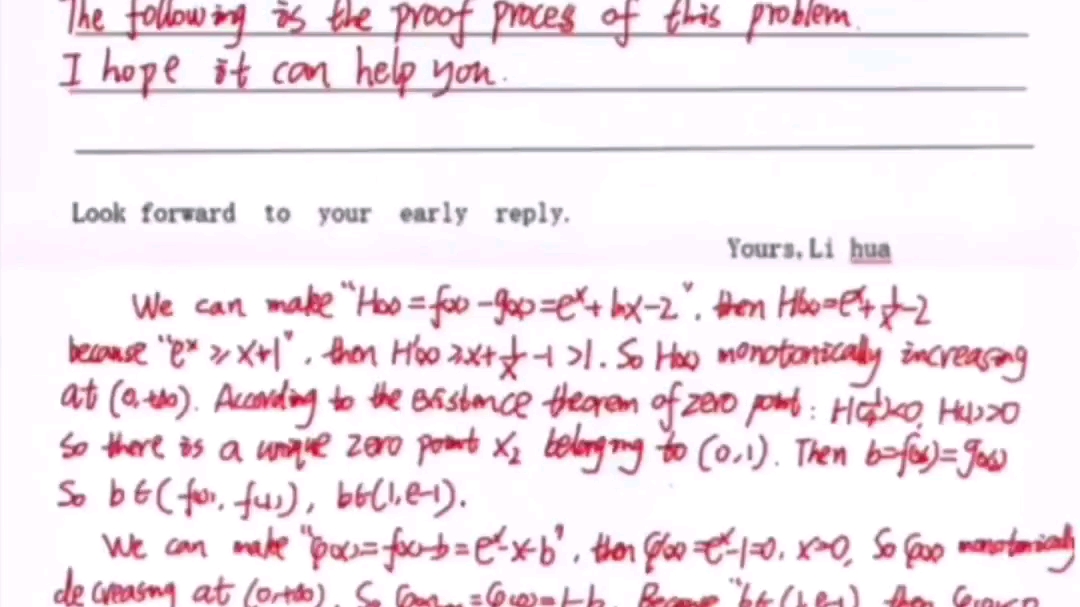 The following is the proof proces of this problem.
I hope it can help you.
Look forward to your early reply.
Yours, Li hua
We can make "H(x) = f(x) - g(x) = e^x + lnx - 2", then H'(x) = e^x + 1/x - 2
because "e^x ≥ x+1", then H'(x) ≥ x + 1/x - 1 > 1. So H(x) monotonically increasing
at (0,+∞). According to the existence theorem of zero point: H( )<0, H(1)>0
So there is a unique zero point x₂ belonging to (0,1). Then b=f(x)=g(x)
So b∈(f(0), f(1)), b∈(1,e-1).
We can make "φ(x) = f(x)-b = e^x-x-b", then φ'(x) = e^x-1=0, x=0, So φ(x) monotonically
decreasing at (0,+∞). So = φ(0)=1-b. Because "b∈(1,e-1), then